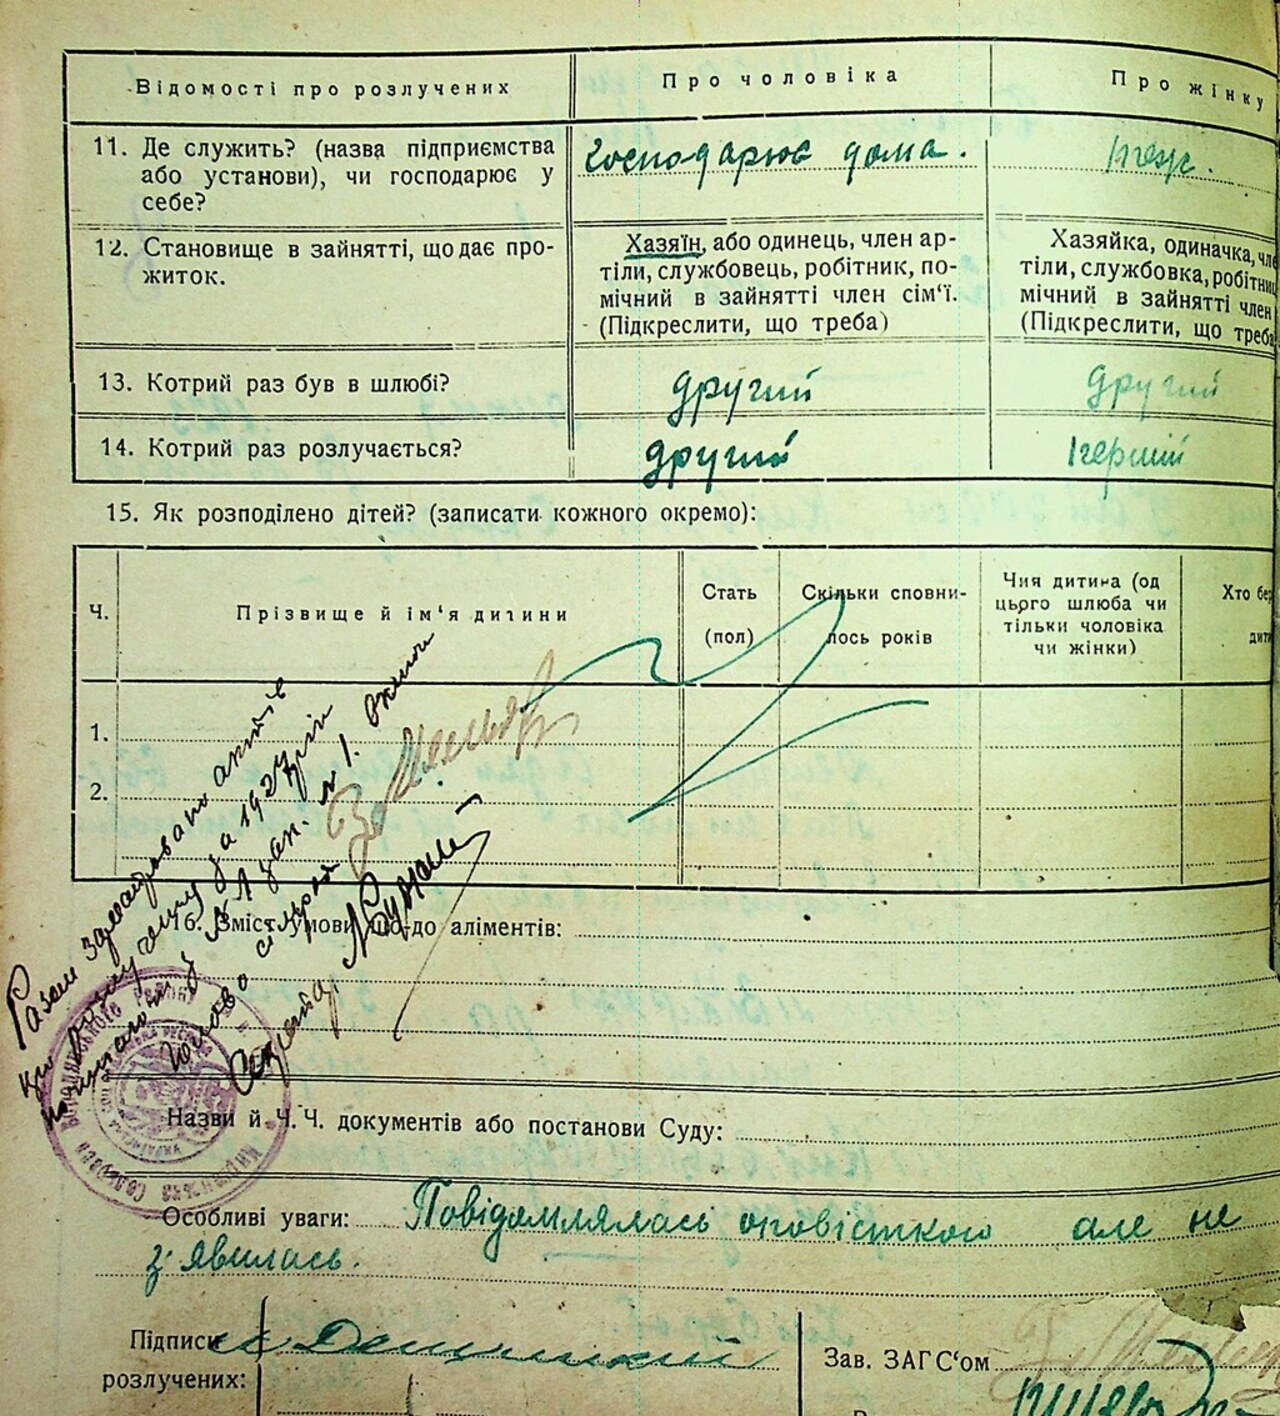 Відомості про розлучених
Про чоловіка
Про жінку
11. Де служить? (назва підприємства
або установи), чи господарює у
себе?
господарює дома.
теж.
12. Становище в зайнятті, що дає про-
житок.
Хазяїн, або одинець, член ар-
тіли, службовець, робітник, по-
мічний в зайнятті член сім'ї.
(Підкреслити, що треба)
Хазяйка, одиначка, чле
тіли, службовка, робітниц
мічний в зайнятті член
(Підкреслити, що треба
13. Котрий раз був в шлюбі?
другий
другий
14. Котрий раз розлучається?
другий
перший
15. Як розподілено дітей? (записати кожного окремо):
Ч.
Прізвище й ім'я дитини
Стать
(пол)
Скільки сповни-
лось років
Чия дитина (од
цього шлюба чи
тільки чоловіка
чи жінки)
Хто бер
дити
1.
2.
Разом
актів
за 1927 рік
з № 1 по № 1.
Голова с/ради
Секретар
16. Зміст умови що-до аліментів:
Назви й Ч.Ч. документів або постанови Суду:
Особливі уваги: Повідомлялась оповісткою але не
з'явилась.
Підписи
розлучених:
Зав. ЗАГС'ом